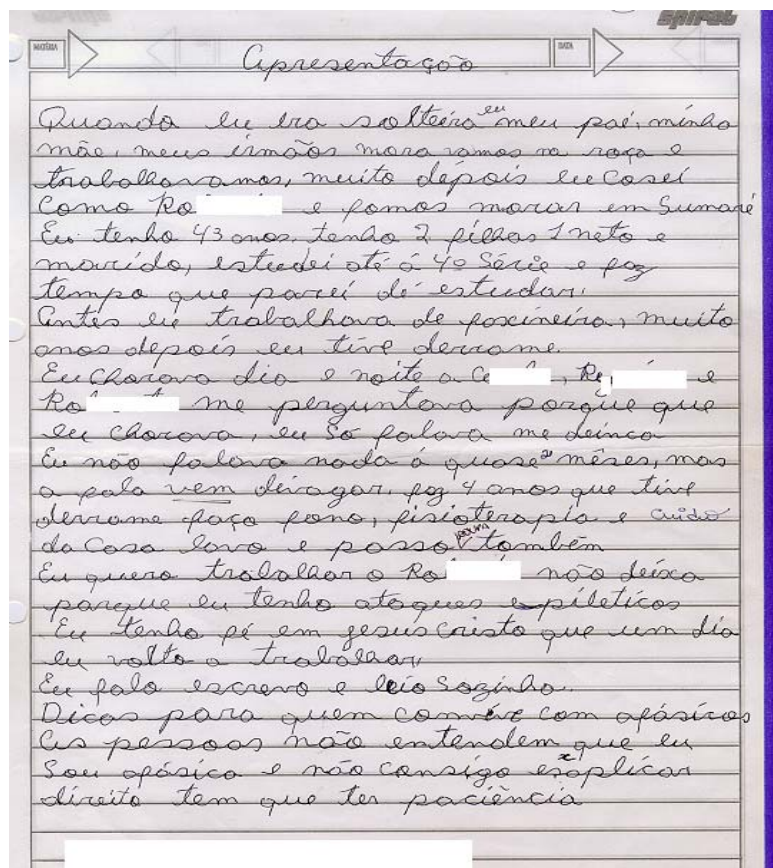 spiral
MATÉRIA
DATA
Apresentação
Quando eu era solteira eu meu pai, minha
mãe, meus irmãos mora vamos na roça e
trabalhavamos, muito depois eu casei
Como Ro e fomos morar em Sumaré
Eu tenho 43 anos. tenho 2 filhas 1 neto e
marido, estudei até á 4º Série e faz
tempo que parei de estudar.
Antes eu trabalhava de faxineira, muito
anos depois eu tive derrame.
Eu chorava dia e noite a C , Re e
Ro me perguntava porque que
eu chorava, eu só falava me deinca
Eu não falava nada á quase 2 mêses, mas
a fala vem divagar. faz 4 anos que tive
derrame faço fono, fisioterapia e cuido
da Casa lavo e passo roupa também
Eu quero trabalhar o Ro não deixa
parque eu tenho ataques epiléticos
Eu tenho fé em jesus cristo que um dia
eu volto a trabalhar,
Eu falo escrevo e leio Sozinha.
Dicas para quem convive com afásicos
As pessoas não entendem que eu
Sou afásica e não consigo explicar
direito tem que ter paciência